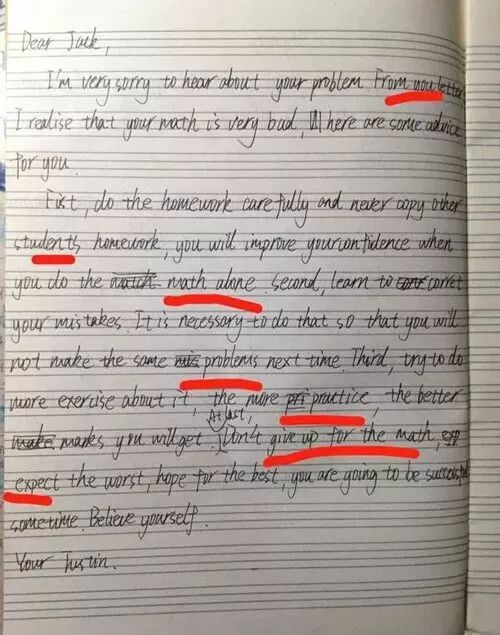 Dear Jack,
I'm very sorry to hear about your problem. From you letter
I realise that your math is very bad, here are some advice
for you.
Fist, do the homework carefully and never copy other
student's homework, you will improve your confidence when
you do the math alone. second, learn to corret
your mistakes. It is necessary to do that so that you will
not make the same problems next time. Third, try to do
more exercise about it, the more practice, the better
At last,
marks you will get. Don't give up for the math,
expect the worst, hope for the best, you are going to be successful
sometime. Believe yourself.
Your Justin.